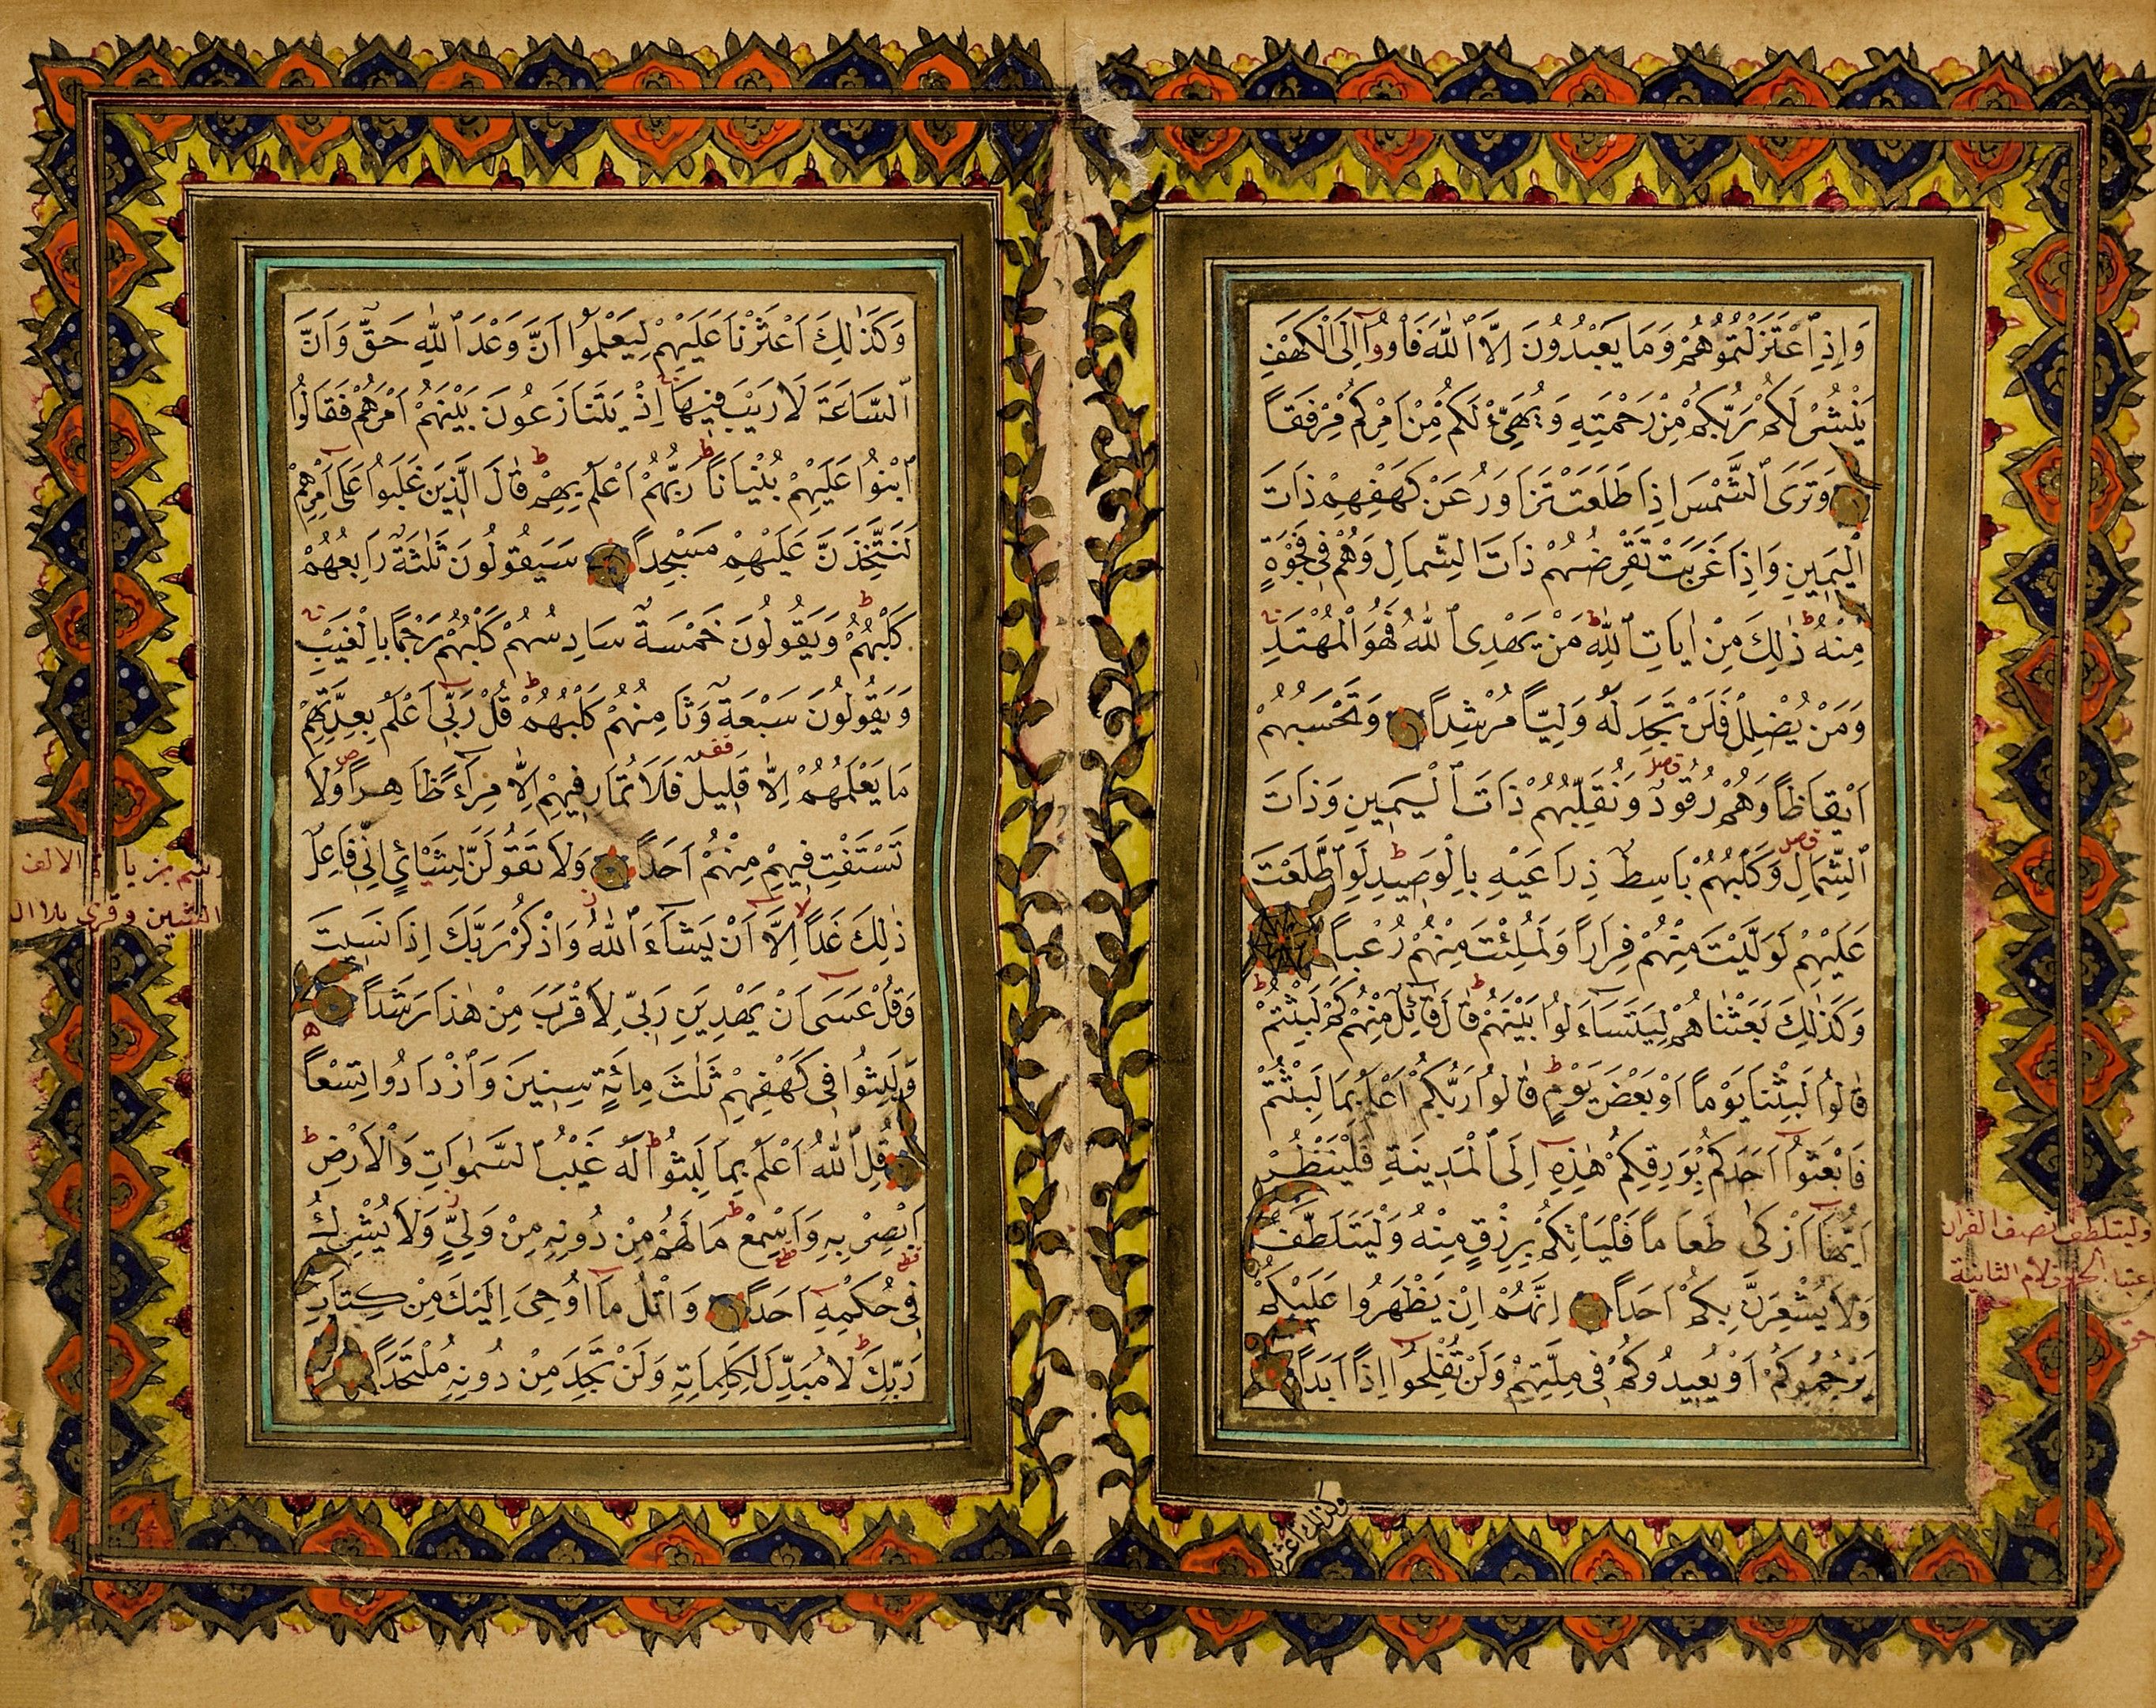 وَاِذِ ٱعْتَزَلْتُمُوهُمْ وَمَا يَعْبُدُونَ اِلَّا ٱللّٰهَ فَاْوُوآ اِلَى ٱلْكَهْفِ
يَنْشُرْ لَكُمْ رَبُّكُمْ مِنْ رَحْمَتِهِ وَيُهَيِّئْ لَكُمْ مِنْ اَمْرِكُمْ مِرْفَقَاً
وَتَرَى ٱلشَّمْسَ اِذَا طَلَعَتْ تَزَاوَرُ عَنْ كَهْفِهِمْ ذَاتَ
ٱلْيَمِينِ وَاِذَا غَرَبَتْ تَقْرِضُهُمْ ذَاتَ ٱلشِّمَالِ وَهُمْ فِى فَجْوَةٍ
مِنْهُ ط ذٰلِكَ مِنْ اٰيَاتِ ٱللّٰهِ ط مَنْ يَهْدِى ٱللّٰهُ فَهُوَ ٱلْمُهْتَدِ
وَمَنْ يُضْلِلْ فَلَنْ تَجِدَ لَهُ وَلِيّاً مُرْشِداً وَتَحْسَبُهُمْ
اَيْقَاظاً وَهُمْ رُقُودٌ وَنُقَلِّبُهُمْ ذَاتَ ٱلْيَمِينِ وَذَاتَ
ٱلشِّمَالِ وَكَلْبُهُمْ بَاسِطٌ ذِرَاعَيْهِ بِالْوَصِيدِ ط لَوِ ٱطَّلَعْتَ
عَلَيْهِمْ لَوَلَّيْتَ مِنْهُمْ فِرَاراً وَلَمُلِئْتَ مِنْهُمْ رُعْباً
وَكَذٰلِكَ بَعَثْنَاهُمْ لِيَتَسَاۤءَلُوا بَيْنَهُمْ ط قَالَ قَاۤئِلٌ مِنْهُمْ كَمْ لَبِثْتُمْ ط
قَالُوا لَبِثْنَا يَوْماً اَوْ بَعْضَ يَوْمٍ ط قَالُوا رَبُّكُمْ اَعْلَمُ بِمَا لَبِثْتُمْ
فَابْعَثُوۤا اَحَدَكُمْ بِوَرِقِكُمْ هٰذِهِۤ اِلَى ٱلْمَدِينَةِ فَلْيَنْظُرْ
اَيُّهَاۤ اَزْكىٰ طَعَاماً فَلْيَاْتِكُمْ بِرِزْقٍ مِنْهُ وَلْيَتَلَطَّفْ
وَلَا يُشْعِرَنَّ بِكُمْ اَحَداً اِنَّهُمْ اِنْ يَظْهَرُوا عَلَيْكُمْ
يَرْجُمُوكُمْ اَوْ يُعِيدُوكُمْ فِى مِلَّتِهِمْ وَلَنْ تُفْلِحُوۤا اِذاً اَبَداً
وليتلطف نصف القران
الثانية
وكذلك اعثرنا
وَكَذٰلِكَ اَعْثَرْنَا عَلَيْهِمْ لِيَعْلَمُوۤا اَنَّ وَعْدَ ٱللّٰهِ حَقٌّ وَاَنَّ
ٱلسَّاعَةَ لَا رَيْبَ فِيهَا اِذْ يَتَنَازَعُونَ بَيْنَهُمْ اَمْرَهُمْ فَقَالُوا
ٱبْنُوا عَلَيْهِمْ بُنْيَاناً ط رَبُّهُمْ اَعْلَمُ بِهِمْ ط قَالَ ٱلَّذِينَ غَلَبُوا عَلٰىۤ اَمْرِهِمْ
لَنَتَّخِذَنَّ عَلَيْهِمْ مَسْجِداً سَيَقُولُونَ ثَلٰثَةٌ رَابِعُهُمْ
كَلْبُهُمْ ط وَيَقُولُونَ خَمْسَةٌ سَادِسُهُمْ كَلْبُهُمْ رَجْماً بِالْغَيْبِ
وَيَقُولُونَ سَبْعَةٌ وَثَامِنُهُمْ كَلْبُهُمْ ط قُلْ رَبِّىۤ اَعْلَمُ بِعِدَّتِهِمْ
مَا يَعْلَمُهُمْ اِلَّا قَلِيلٌ فَلَا تُمَارِ فِيهِمْ اِلَّا مِرَاۤءً ظَاهِراً ص وَلَا
تَسْتَفْتِ فِيهِمْ مِنْهُمْ اَحَداً وَلَا تَقُولَنَّ لِشَاْىءٍ اِنِّى فَاعِلٌ
ذٰلِكَ غَداً لا اِلَّاۤ اَنْ يَشَاۤءَ ٱللّٰهُ ز وَاذْكُرْ رَبَّكَ اِذَا نَسِيتَ
وَقُلْ عَسٰىۤ اَنْ يَهْدِيَنِ رَبِّى لِاَقْرَبَ مِنْ هٰذَا رَشَداً
وَلَبِثُوا فِى كَهْفِهِمْ ثَلٰثَ مِائَةٍ سِنِينَ وَٱزْدَادُوا تِسْعاً
قُلِ ٱللّٰهُ اَعْلَمُ بِمَا لَبِثُوا ط لَهُ غَيْبُ ٱلسَّمٰوَاتِ وَٱلْاَرْضِ ط
اَبْصِرْ بِهِ وَاَسْمِعْ ط مَا لَهُمْ مِنْ دُونِهِ مِنْ وَلِىٍّ ز وَلَا يُشْرِكُ
فِى حُكْمِهِۤ اَحَداً وَاتْلُ مَاۤ اُوحِىَ اِلَيْكَ مِنْ كِتَابِ
رَبِّكَ ط لَا مُبَدِّلَ لِكَلِمَاتِهِ وَلَنْ تَجِدَ مِنْ دُونِهِ مُلْتَحَداً
الالف
الشين وقرئ بلا ال